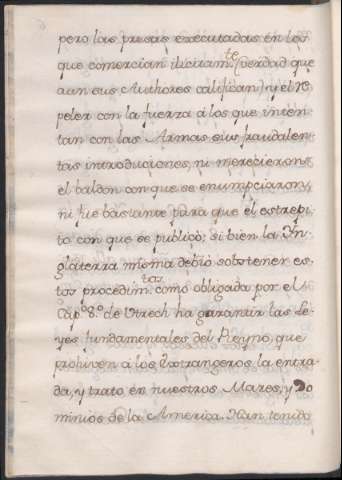 pero las presas executadas en los
que comercian ilicitam.te (verdad que
aun sus Authores califican) ni el re
peler con la fuerza á los que inten
tan con las Armas sus fraudulen
tas introduciones, ni merecieron
el baldon con que se
ni fue bastante para que el estrepi
to con que se publicò; si bien la Yn
glaterra misma debio sobstener es
tos procedim.tos como obligada por el
Cap.o 8.o de Utrech ha garantir las Le
yes fundamentales del Reyno, que
prohiven á los Extrangeros la entra
da, y trato en nuestros Mares, y Do
minios de la America. Han tenido